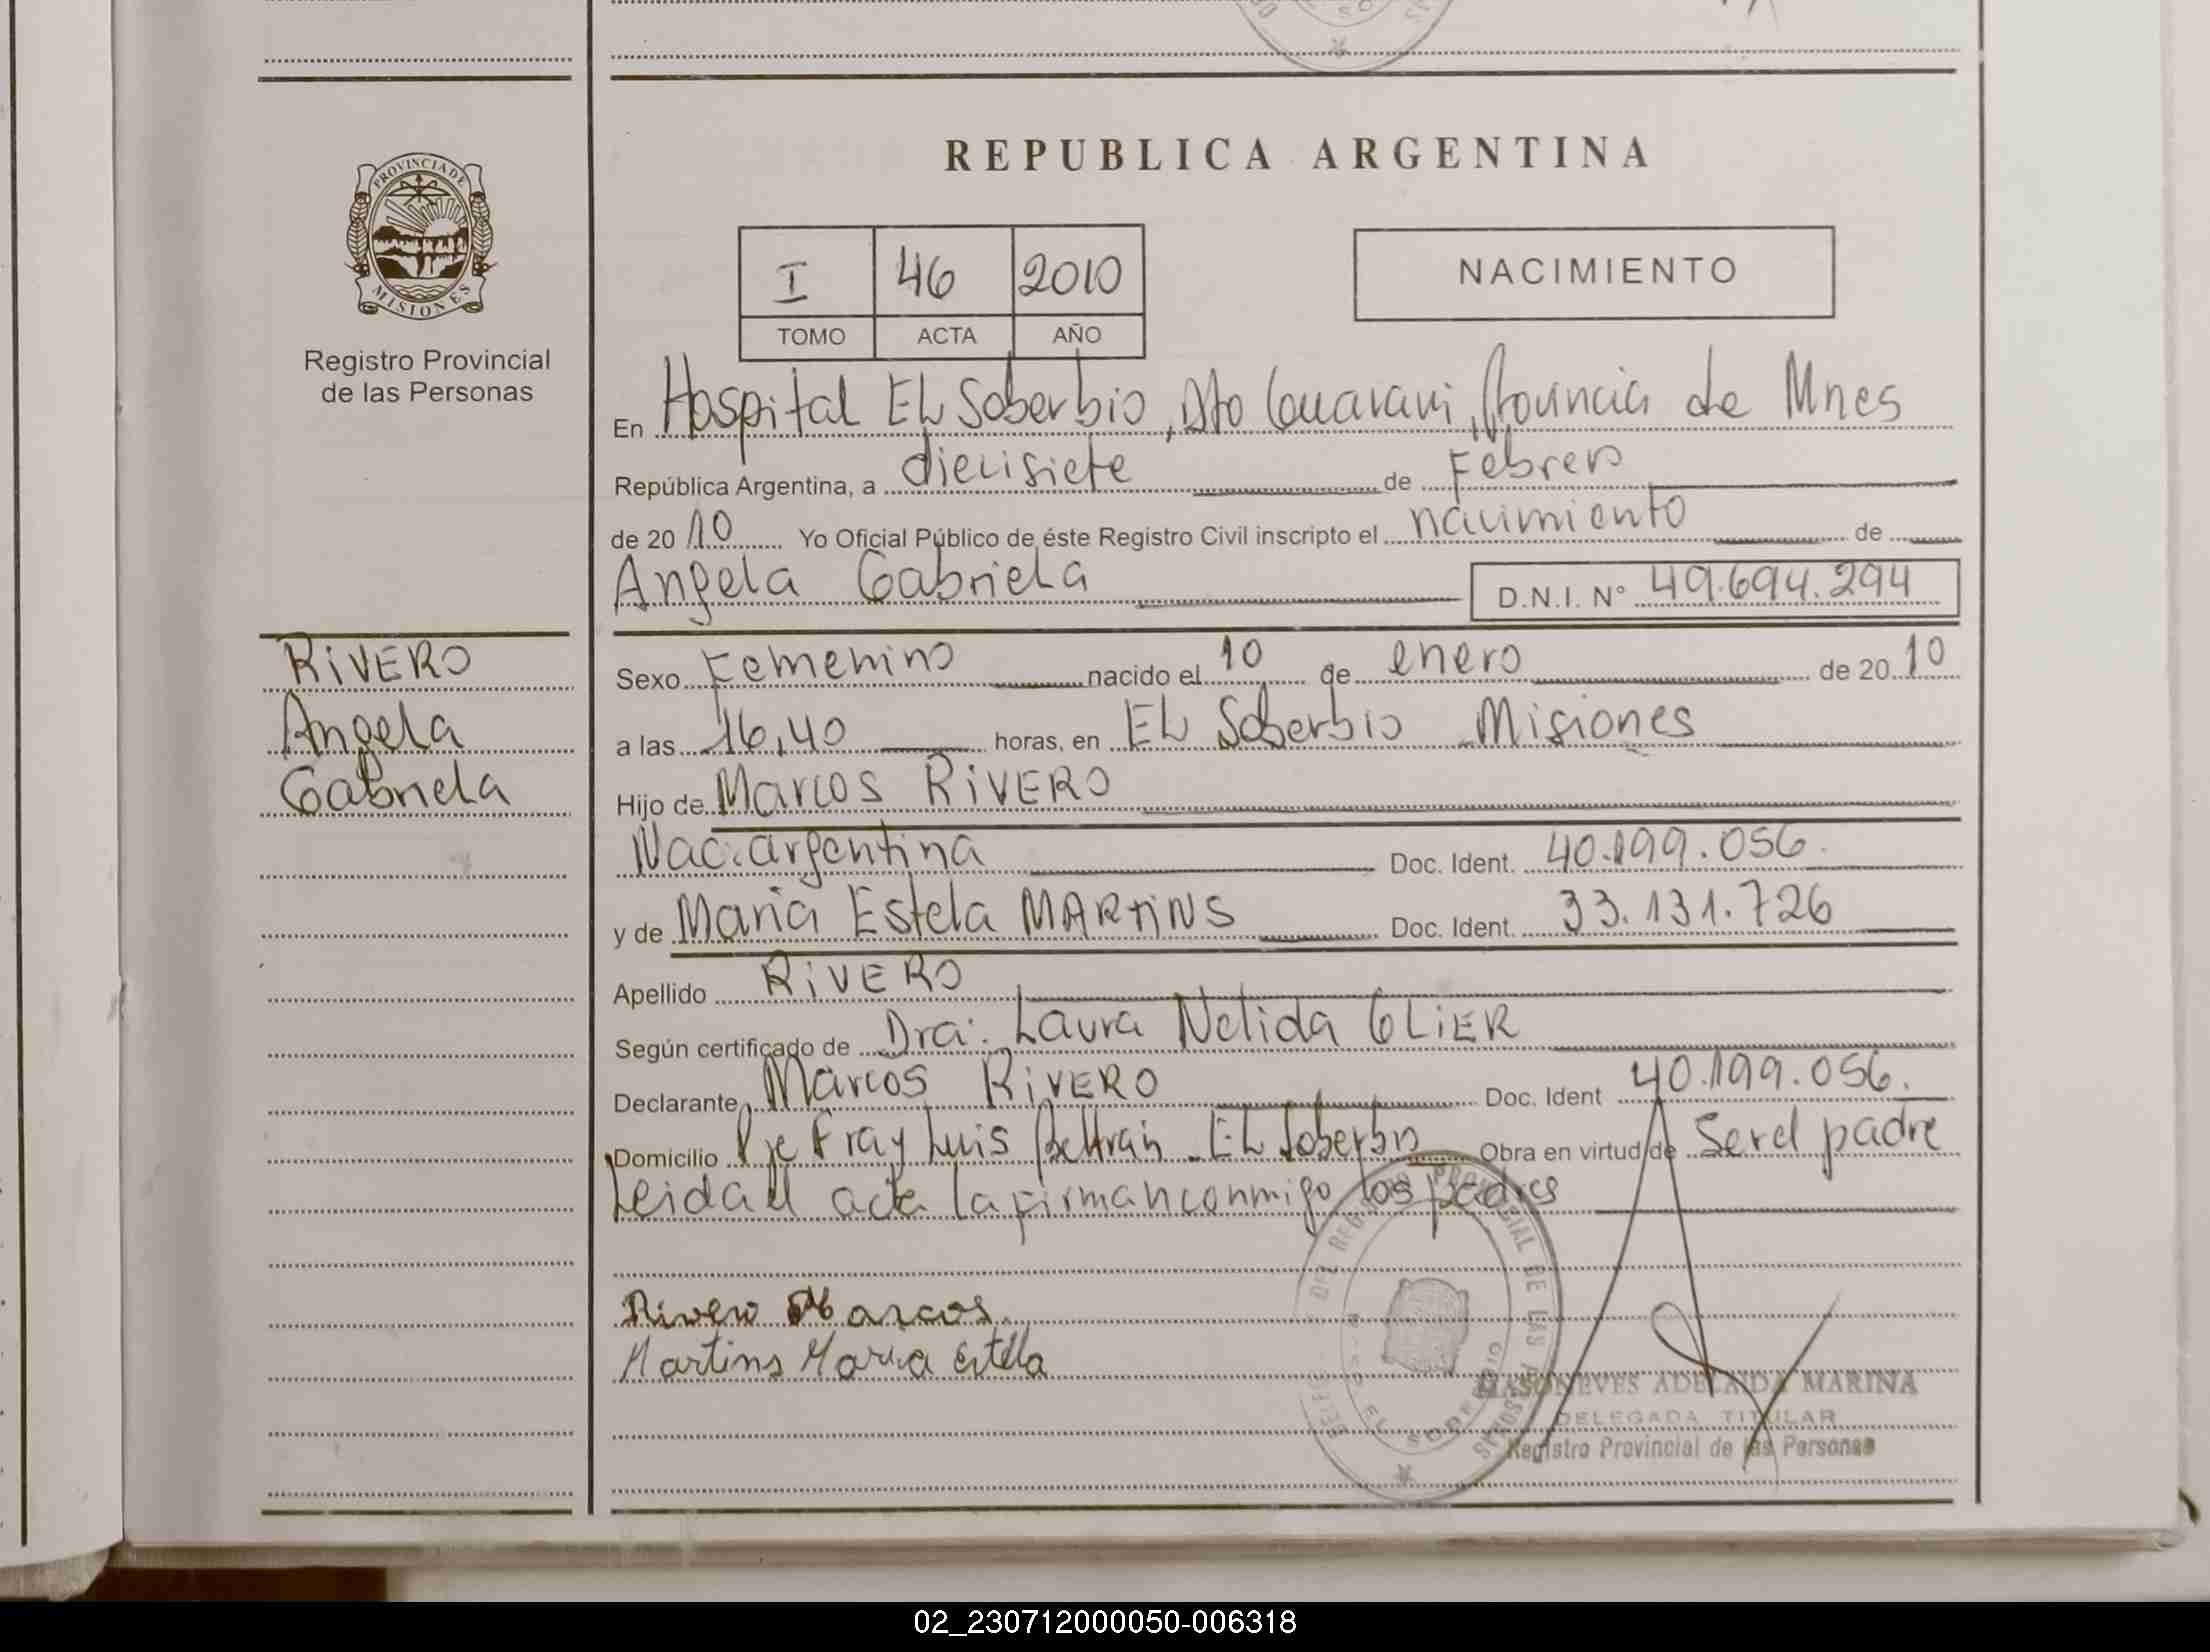 REPUBLICA ARGENTINA
PROVINCIA DE
MISIONES
Registro Provincial
de las Personas
I 46 2010
TOMO ACTA AÑO
NACIMIENTO
En Hospital EL Soberbio, Dto Guarani, Provincia de Mnes
República Argentina, a diecisiete de Febrero
de 20 10 Yo Oficial Público de éste Registro Civil inscripto el nacimiento de
Angela Gabriela D.N.I. N° 49.694.294
RiVERO
Angela
Gabriela
Sexo Femenino nacido el 10 de enero de 20 10
a las 16,40 horas, en EL Soberbio Misiones
Hijo de Marcos RiVERO
Nac. argentina Doc. Ident. 40.199.056.
y de Maria Estela MARtiNS Doc. Ident. 33.131.726
Apellido RiVERO
Según certificado de Dra: Laura Nelida GLiER
Declarante Marcos RiVERO Doc. Ident 40.199.056.
Domicilio Pje Fray Luis Beltran EL Soberbio Obra en virtud de Ser el padre
Leida el acta la firman conmigo los padres
Rivero Marcos.
Martins Maria Estela
DEL REGISTRO PROVINCIAL DE LAS PERSONAS
EL SOBERBIO
MASONEVES ADELAIDA MARINA
DELEGADA TITULAR
Registro Provincial de las Personas
02_230712000050-006318